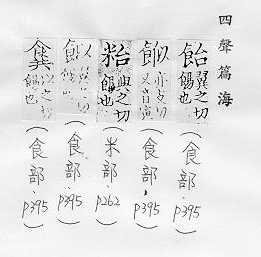 四聲篇海
飴翼之切餳也(食部.P395)
亦支切又音演(食部.P395)
與之切餳也(米部.P262)
以切(食部.P395)
以之切餳也(食部.P395)